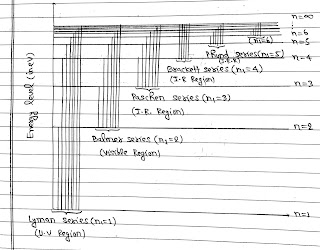 n=∞
n=6
n=5
(n1=6)
Pfund series(n1=5)
n=4
Brackett series (n1=4)
(I.R Region)
n=3
Paschen series (n1=3)
(I.R. Region)
n=2
Balmer series (n1=2)
(Visible Region)
Energy level (in ev)
n=1
Lyman series(n1=1)
(U.V Region)